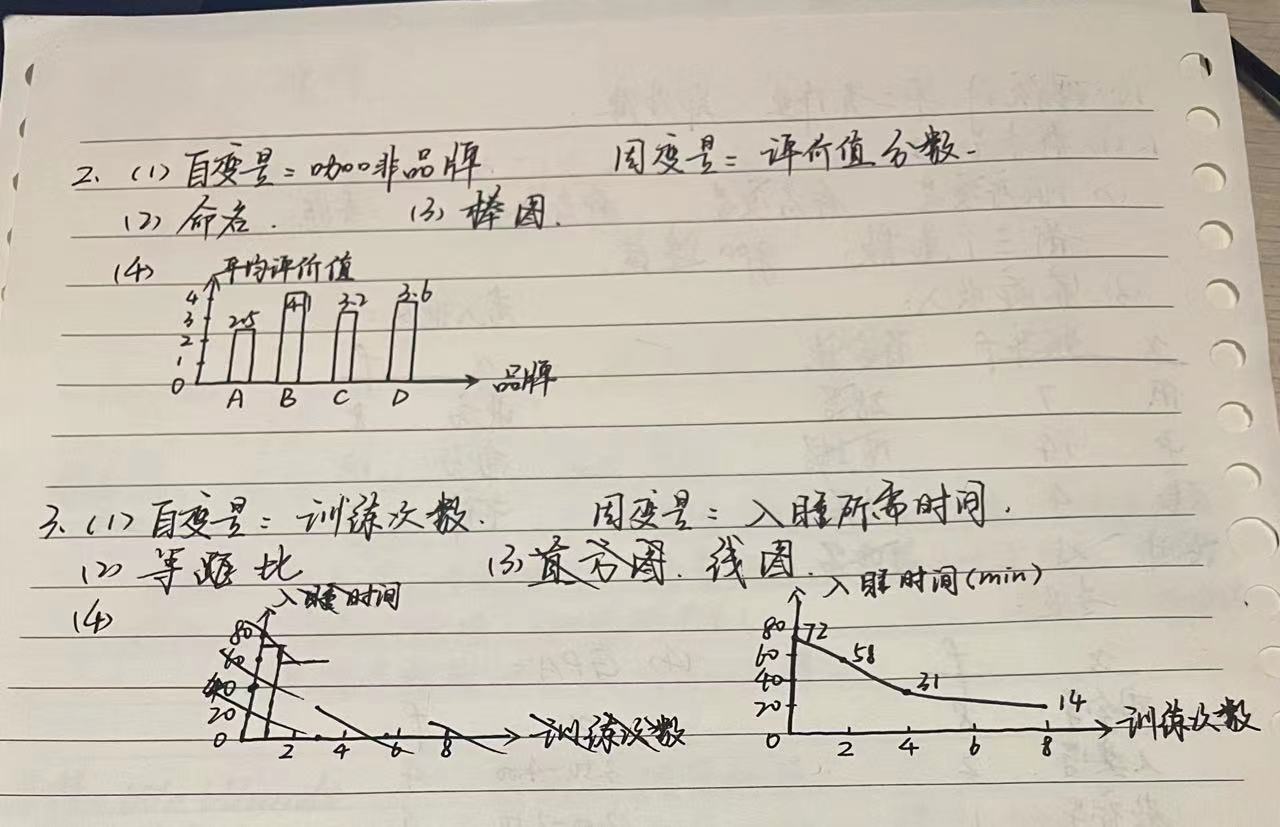 2. (1) 自变量: 咖啡品牌. 因变量: 评价值分数.
(2) 命名. (3) 棒图.
(4) 平均评价值
4
3
2
1
0
2.5 4.1 3.2 3.6
A B C D
品牌
3. (1) 自变量: 训练次数. 因变量: 入睡所需时间.
(2) 等距比 (3) 直方图. 线图.
(4) 入睡时间
80
60
40
20
0
2 4 6 8
训练次数
入睡时间(min)
80
60
40
20
0
72 58 31 14
2 4 6 8
训练次数